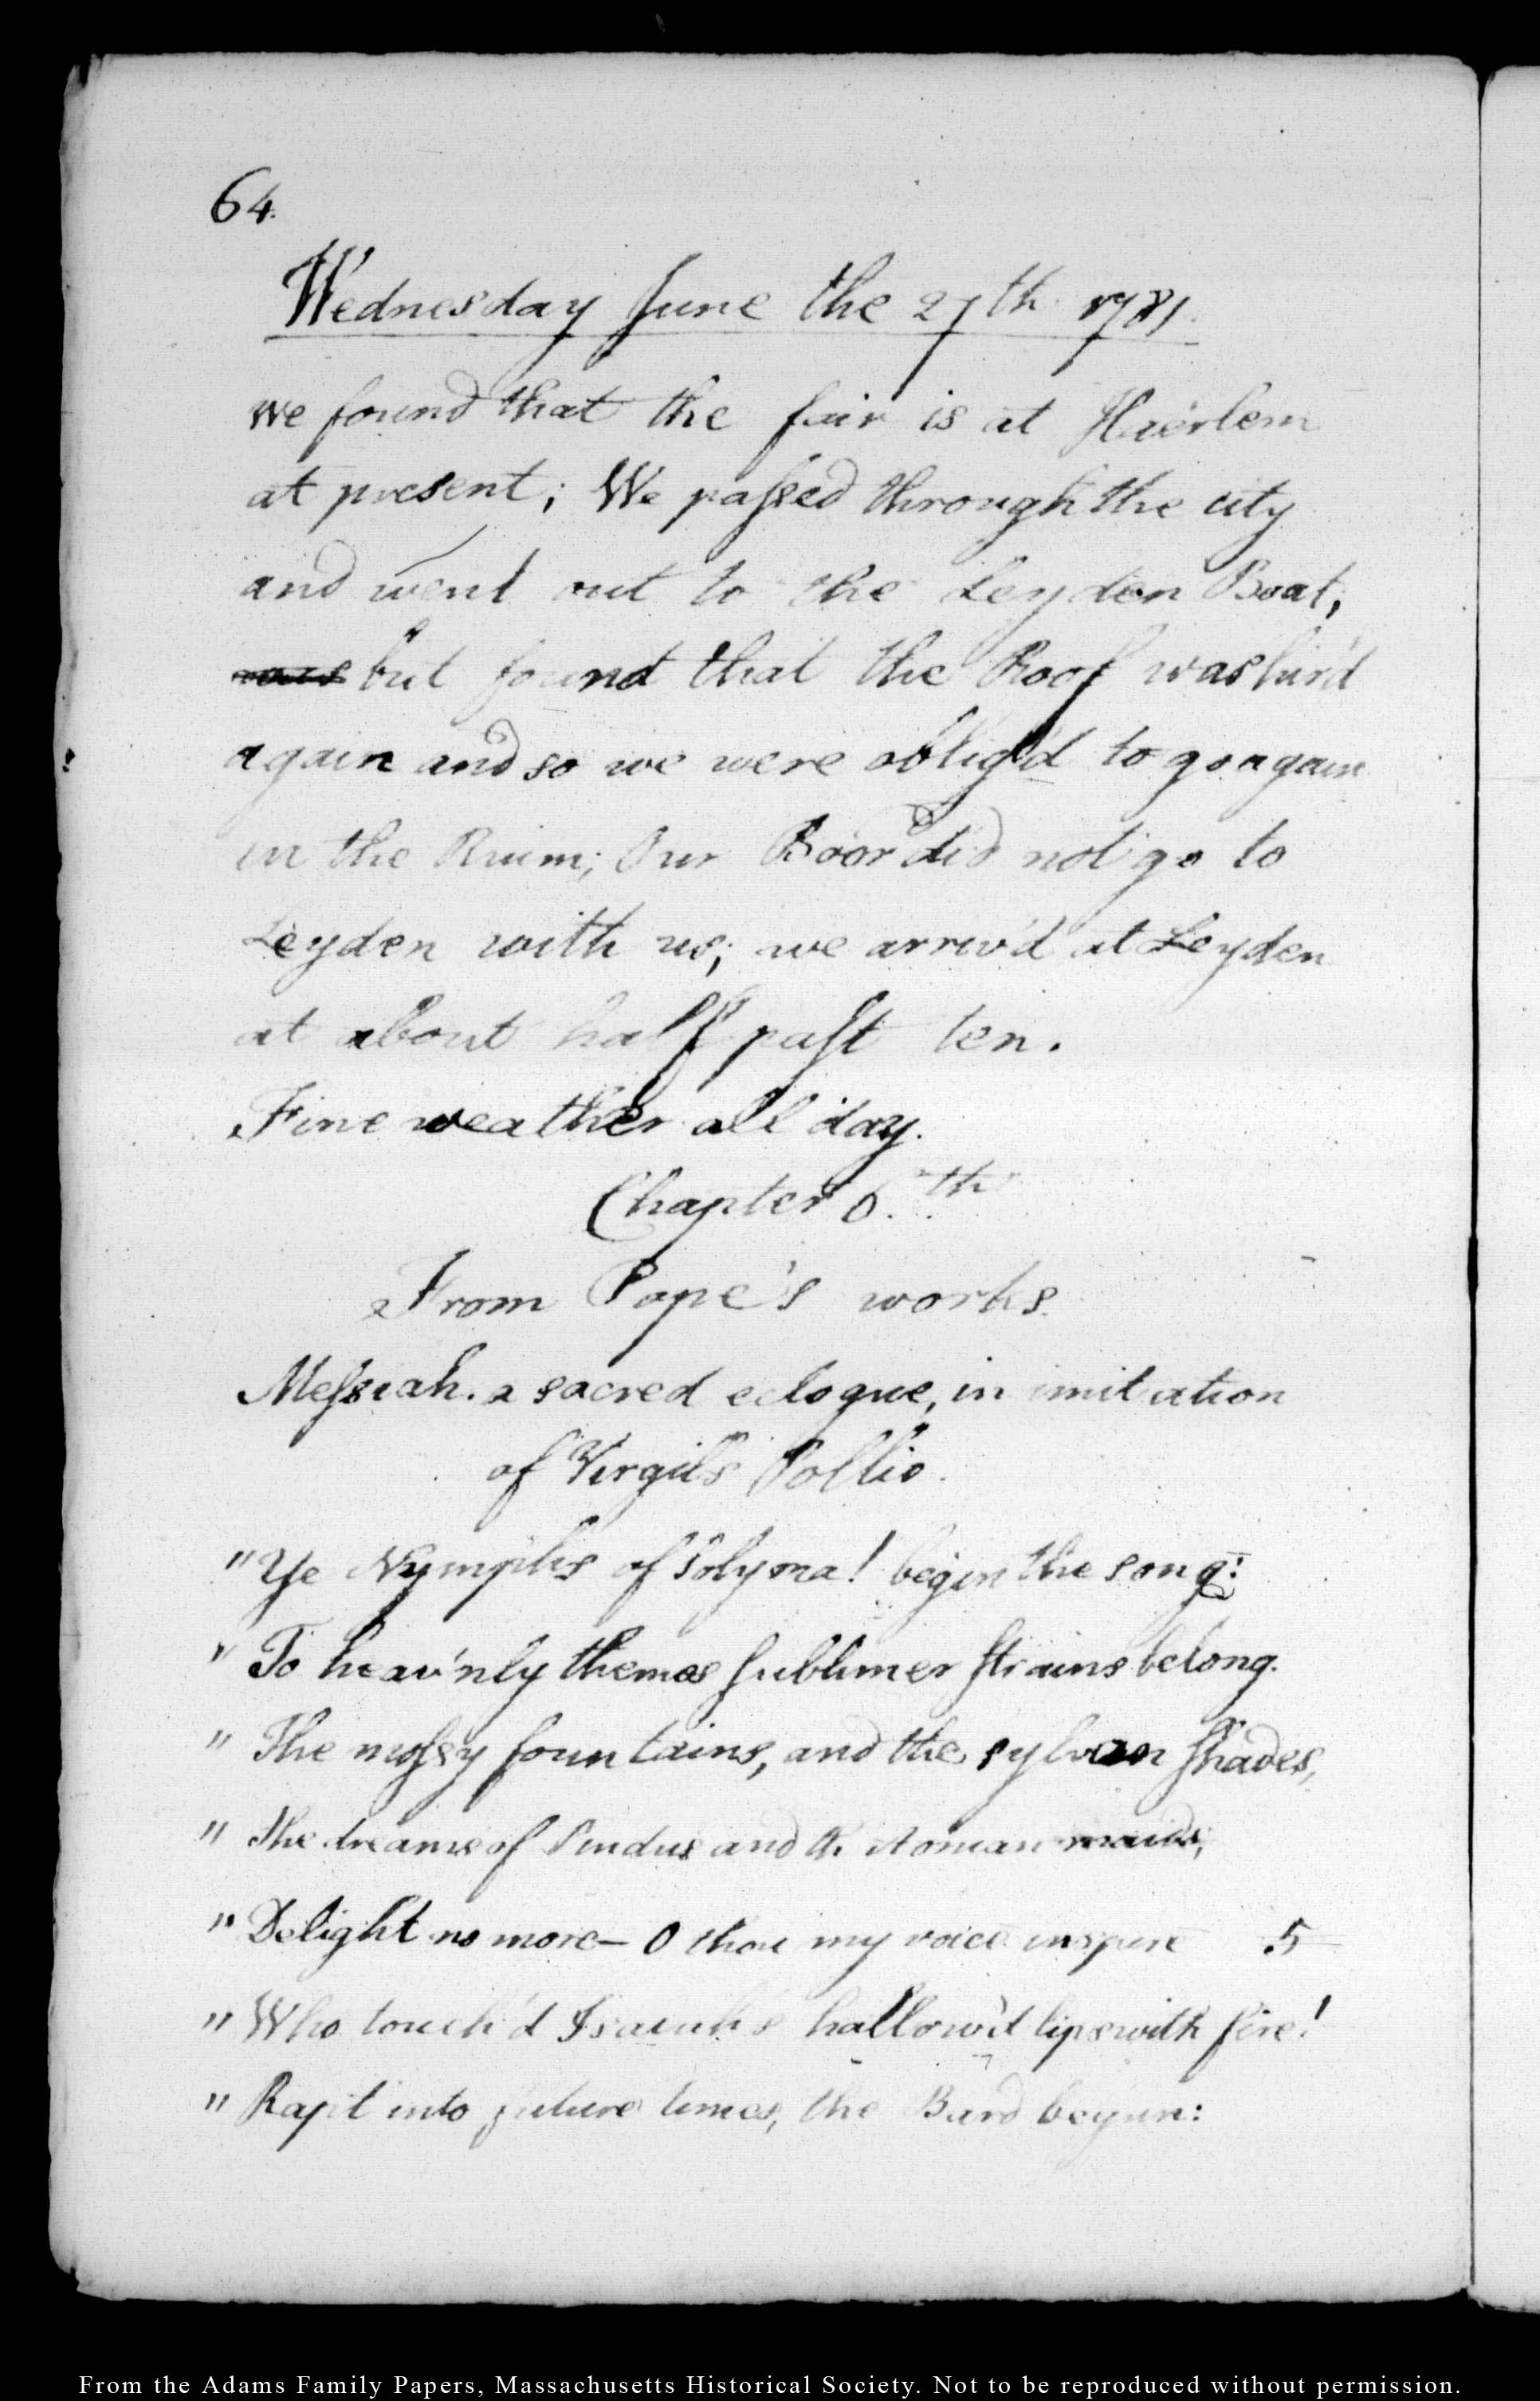 64.
Wednesday June the 27th 1781.
we found that the fair is at Haerlem
at present; We passed through the city
and went out to the Leyden Boat,
but found that the Roof was hir'd
again and so we were oblig'd to go again
in the Ruim; Our Boor did not go to
Leyden with us; we arriv'd at Leyden
at about half past ten.
Fine weather all day.
Chapter 6.th
From Pope's works.
Messiah. a sacred eclogue, in imitation
of Virgil's Pollio.
"Ye Nymphs of Solyma! begin the song:
" To heav'nly themes sublimer strains belong.
" The mossy fountains, and the sylvan shades,
" The dreams of Pindus and th' Aonian maids,
" Delight no more— O thou my voice inspire 5
" Who touch'd Isaiah's hallow'd lips with fire!
" Rapt into future times, the Bard begun:
From the Adams Family Papers, Massachusetts Historical Society. Not to be reproduced without permission.